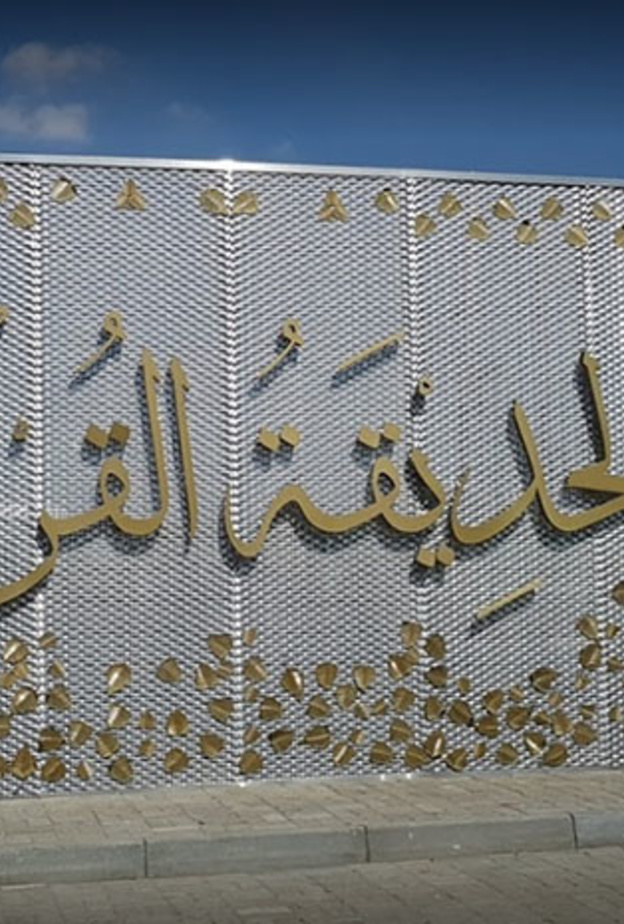 لحدِيْقَةُ القُرْ